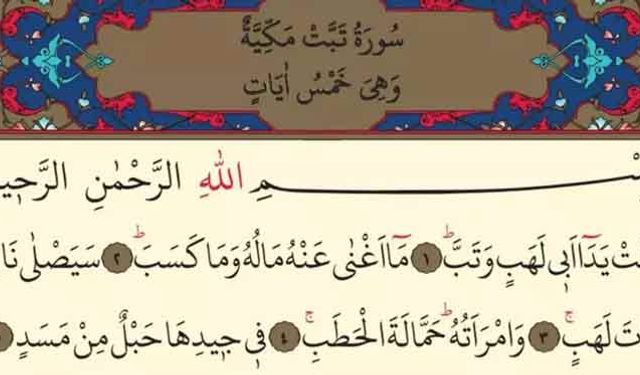 سُورَةُ تَبَّتْ مَكِّيَّةٌ
وَهِىَ خَمْسُ اٰيَاتٍ
ـسْمِ اللّٰهِ الرَّحْمٰنِ الرَّحٖيـ
ـتْ يَدَٓا اَبٖي لَهَبٍ وَتَبَّۜ ١ مَٓا اَغْنٰى عَنْهُ مَالُهُ وَمَا كَسَبَۜ ٢ سَيَصْلٰى نَا
تَ لَهَبٍۚ ٣ وَامْرَاَتُهُۜ حَمَّالَةَ الْحَطَبِۚ ٤ فٖي جٖيدِهَا حَبْلٌ مِنْ مَسَدٍ